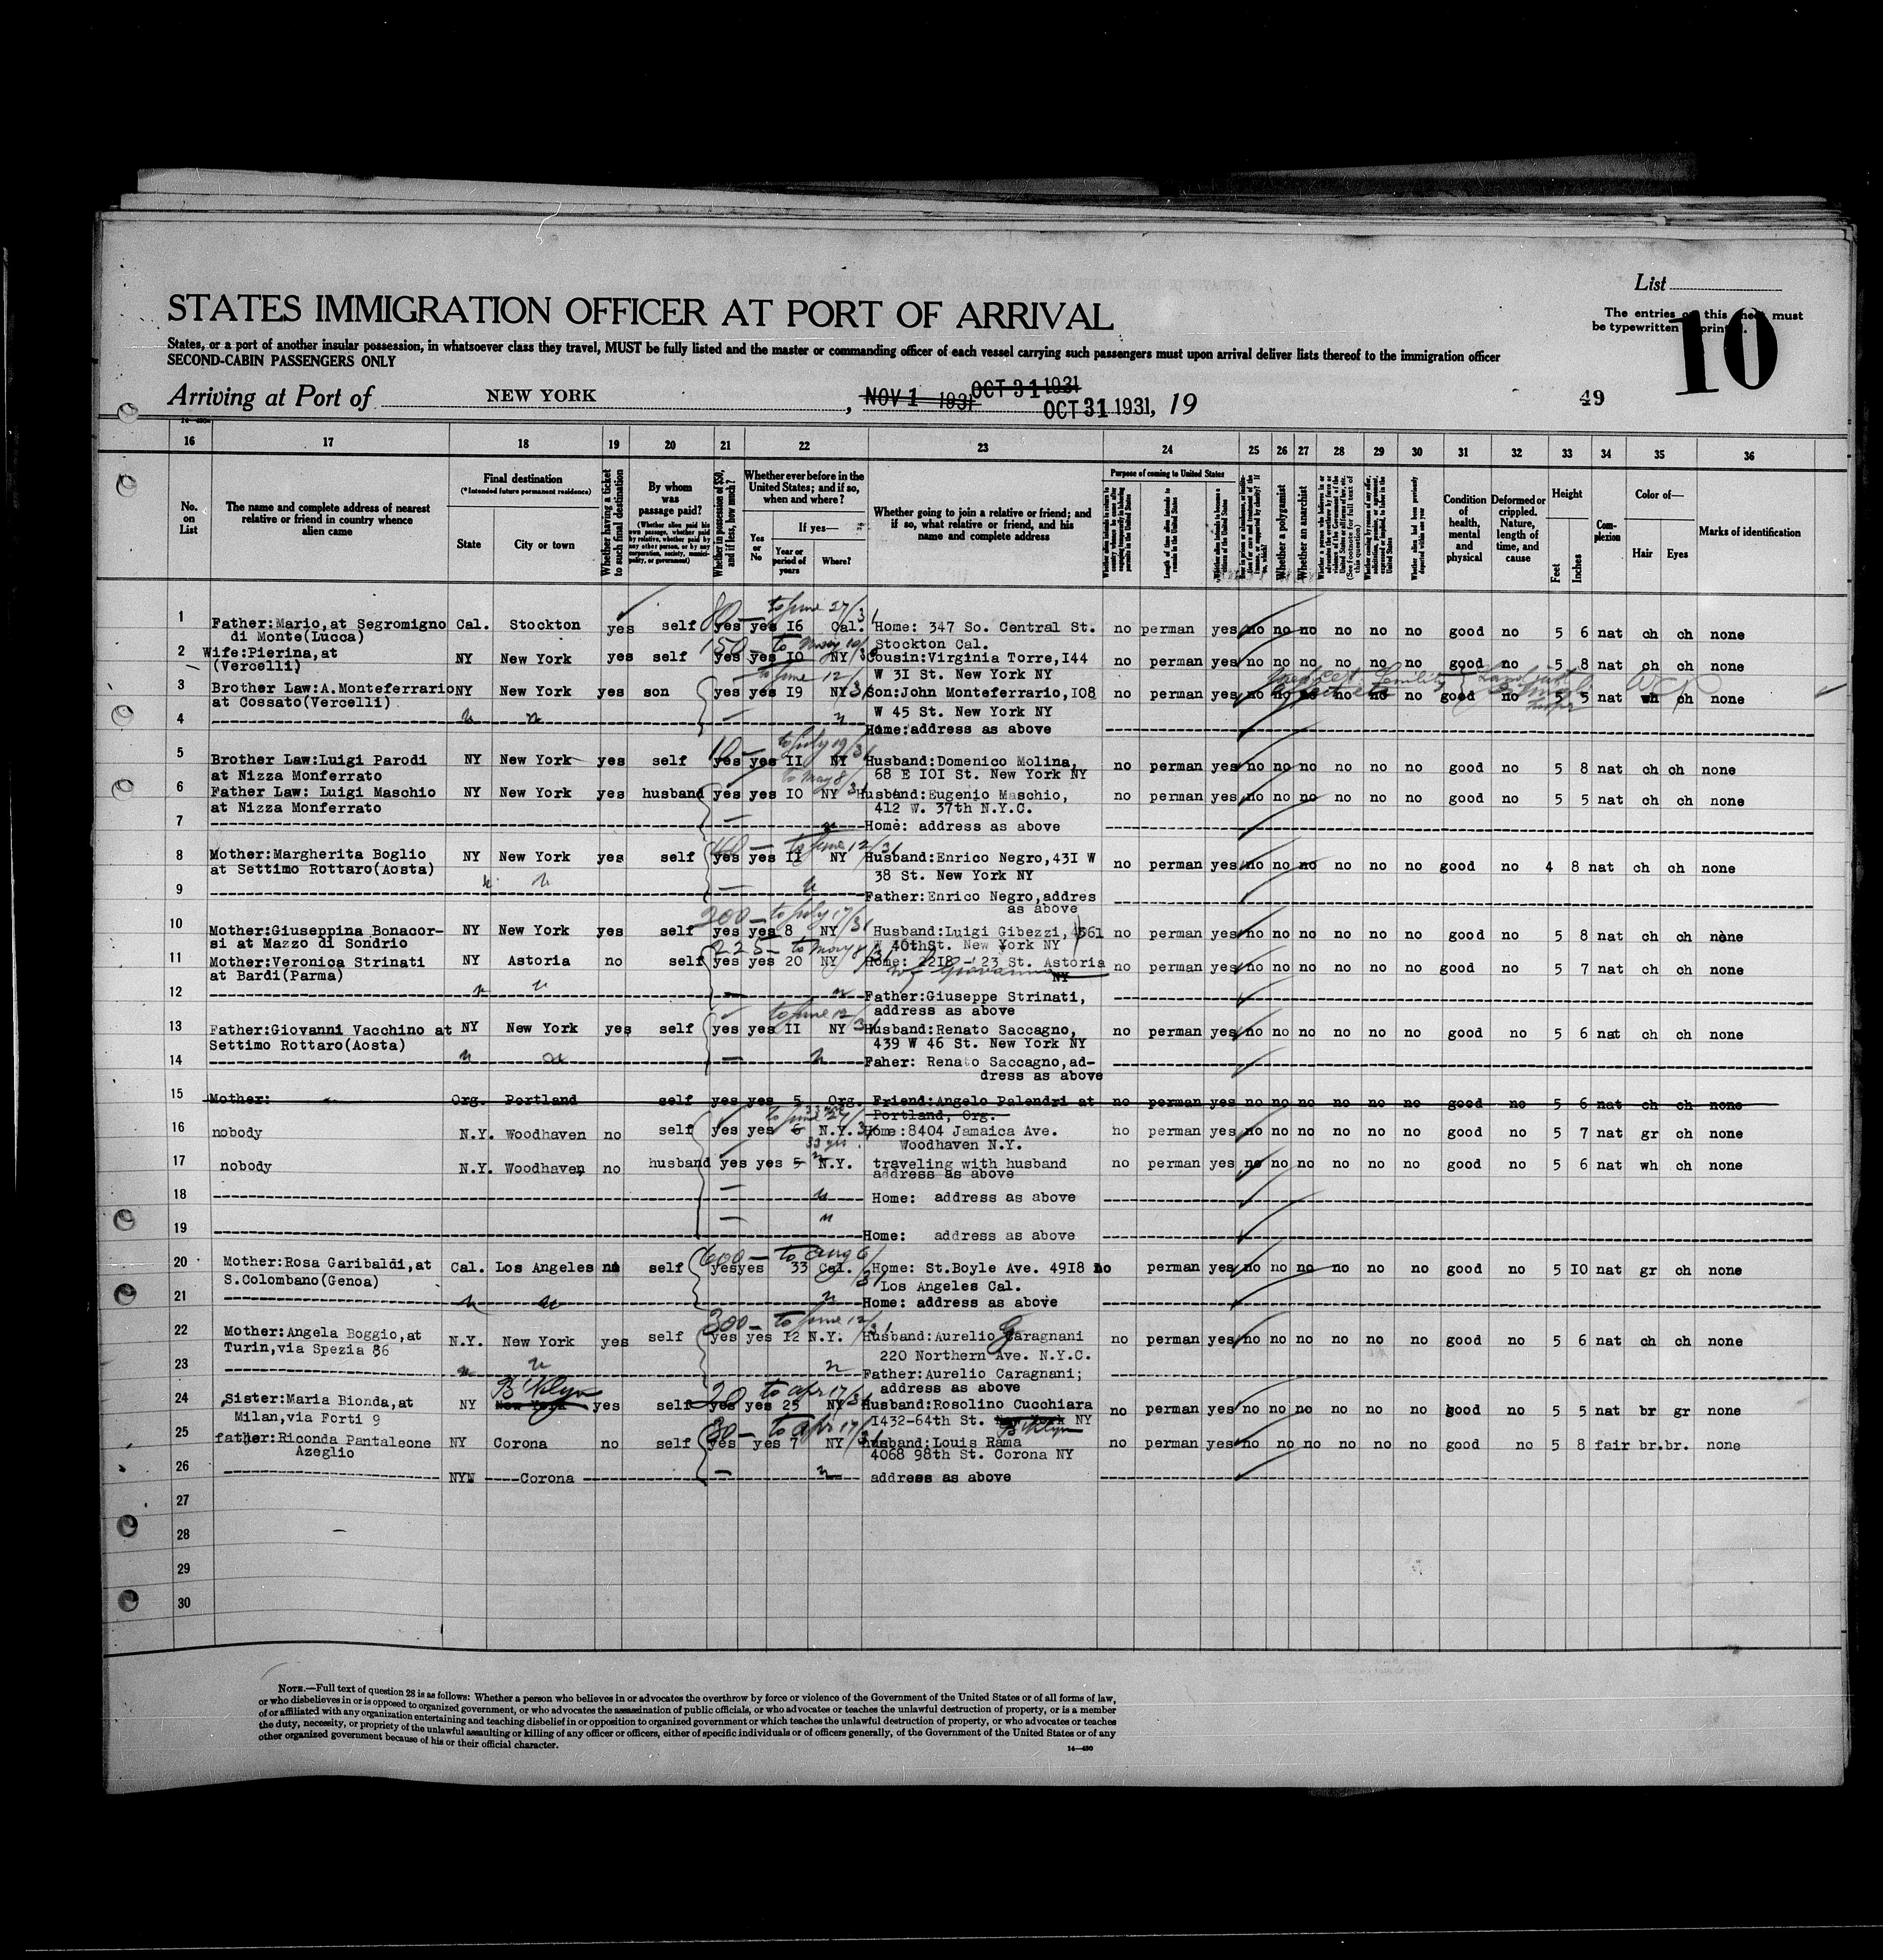 List
The entries on this sheet must
be typewritten or printed.
10
STATES IMMIGRATION OFFICER AT PORT OF ARRIVAL
States, or a port of another insular possession, in whatsoever class they travel, MUST be fully listed and the master or commanding officer of each vessel carrying such passengers must upon arrival deliver lists thereof to the immigration officer
SECOND-CABIN PASSENGERS ONLY
Arriving at Port of NEW YORK, NOV 1 1931 OCT 31 1931 OCT 31 1931, 19
49
16 17 18 19 20 21 22 23 24 25 26 27 28 29 30 31 32 33 34 35 36
No. on List
The name and complete address of nearest relative or friend in country whence alien came
Final destination
(*Intended future permanent residence)
State
City or town
Whether having a ticket to such final destination
By whom was passage paid?
Whether in possession of $50, and if less, how much?
Whether ever before in the United States; and if so, when and where?
Yes or No
If yes—
Year or period of years
Where?
Whether going to join a relative or friend; and if so, what relative or friend, and his name and complete address
Purpose of coming to United States
Whether a polygamist
Whether an anarchist
Condition of health, mental and physical
Deformed or crippled. Nature, length of time, and cause
Height
Feet
Inches
Complexion
Color of—
Hair
Eyes
Marks of identification
1 Father:Mario,at Segromigno Cal. Stockton yes self 80— yes yes 16 to June 27/31 Cal. Home: 347 So. Central St. no perman yes no no no no no no good no 5 6 nat ch ch none
di Monte(Lucca) Stockton Cal.
2 Wife:Pierina,at NY New York yes self 150— yes yes 10 NY Cousin:Virginia Torre,144 no perman yes no no no no no no good no 5 8 nat ch ch none
(Vercelli) W 31 St. New York NY
3 Brother Law:A.Monteferrario NY New York yes son yes yes 19 to June 12/31 NY Son:John Monteferrario,108 no perman yes no no no no no no good no 5 5 nat wh ch none
at Cossato(Vercelli) W 45 St. New York NY
4 " " — " Home:address as above
5 Brother Law:Luigi Parodi NY New York yes self 10— yes yes 11 to July 19/31 NY Husband:Domenico Molina, no perman yes no no no no no no good no 5 8 nat ch ch none
at Nizza Monferrato 68 E 101 St. New York NY
6 Father Law: Luigi Maschio NY New York yes husband yes yes 10 to May 8/31 NY Husband:Eugenio Maschio, no perman yes no no no no no no good no 5 5 nat ch ch none
at Nizza Monferrato 412 W. 37th N.Y.C.
7 — " Home: address as above
8 Mother:Margherita Boglio NY New York yes self yes yes 11 to June 12/31 NY Husband:Enrico Negro,431 W no perman yes no no no no no no good no 4 8 nat ch ch none
at Settimo Rottaro(Aosta) 38 St. New York NY
9 " " — " Father:Enrico Negro,addres
as above
10 Mother:Giuseppina Bonacor- NY New York yes self 200— yes yes 8 to July 17/31 NY Husband:Luigi Gibezzi, 4561 no perman yes no no no no no no good no 5 8 nat ch ch none
si at Mazzo di Sondrio W 40thSt. New York NY
11 Mother:Veronica Strinati NY Astoria no self 225— yes yes 20 to May 8/31 NY Home: 2218 - 23 St. Astoria no perman yes no no no no no no good no 5 7 nat ch ch none
at Bardi(Parma) NY
12 " " — " Father:Giuseppe Strinati,
address as above
13 Father:Giovanni Vacchino at NY New York yes self yes yes 11 to June 12/31 NY Husband:Renato Saccagno, no perman yes no no no no no no good no 5 6 nat ch ch none
Settimo Rottaro(Aosta) 439 W 46 St. New York NY
14 " " — " Faher: Renato Saccagno,ad-
dress as above
15 Mother: Org. Portland self yes yes 5 Org. Friend:Angelo Palendri at no perman yes no no no no no no good no 5 6 nat ch ch none
Portland, Org.
16 nobody N.Y. Woodhaven no self yes yes 6 N.Y. Home:8404 Jamaica Ave. no perman yes no no no no no no good no 5 7 nat gr ch none
Woodhaven N.Y.
17 nobody N.Y. Woodhaven no husband yes yes 5 33 yrs N.Y. traveling with husband no perman yes no no no no no no good no 5 6 nat wh ch none
address as above
18 — " Home: address as above
19 — " Home: address as above
20 Mother:Rosa Garibaldi,at Cal. Los Angeles no self 600— yes yes 33 to Aug 6/31 Cal. Home: St.Boyle Ave. 4918 no perman yes no no no no no no good no 5 10 nat gr ch none
S.Colombano(Genoa) Los Angeles Cal.
21 " " " Home: address as above
22 Mother:Angela Boggio,at N.Y. New York yes self 300— yes yes 12 to June 12/31 N.Y. Husband:Aurelio Garagnani no perman yes no no no no no no good no 5 6 nat ch ch none
Turin,via Spezia 86 220 Northern Ave. N.Y.C.
23 " " " Father:Aurelio Caragnani;
address as above
24 Sister:Maria Bionda,at NY New York B'klyn yes self 20 yes yes 25 to Apr 17/31 NY Husband:Rosolino Cucchiara no perman yes no no no no no no good no 5 5 nat br gr none
Milan,via Forti 9 1432-64th St. New York NY B'klyn
25 father:Riconda Pantaleone NY Corona no self 30— yes yes 7 to Apr 17/31 NY husband:Louis Rama no perman yes no no no no no no good no 5 8 fair br. br. none
Azeglio 4068 98th St. Corona NY
26 NYN Corona — " address as above
27
28
29
30
NOTE.—Full text of question 28 is as follows: Whether a person who believes in or advocates the overthrow by force or violence of the Government of the United States or of all forms of law,
or who disbelieves in or is opposed to organized government, or who advocates the assassination of public officials, or who advocates or teaches the unlawful destruction of property, or is a member
of or affiliated with any organization entertaining and teaching disbelief in or opposition to organized government or which teaches the unlawful destruction of property, or who advocates or teaches
the duty, necessity, or propriety of the unlawful assaulting or killing of any officer or officers, either of specific individuals or of officers generally, of the Government of the United States or of any
other organized government because of his or their official character.
14—430